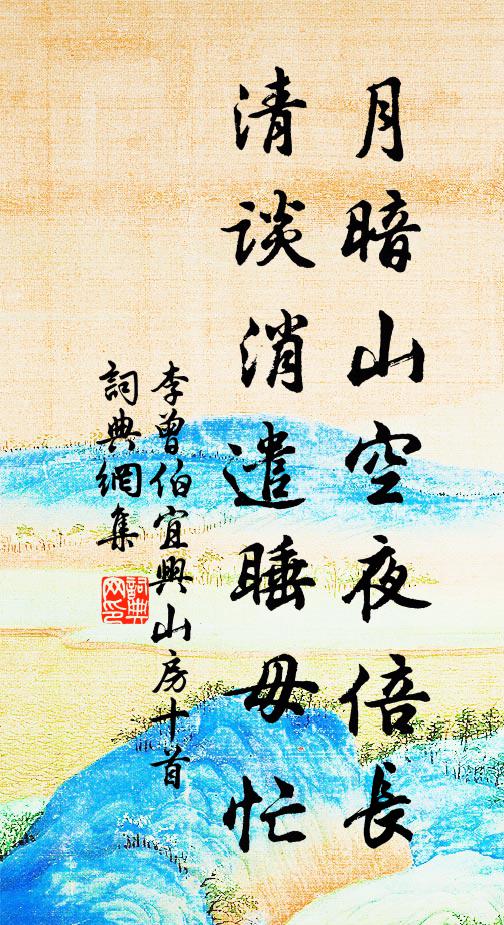 月暗山空夜倍長
清談消遣睡毋忙
李曾伯宜興山房十首
詞典網集
詞典
网印